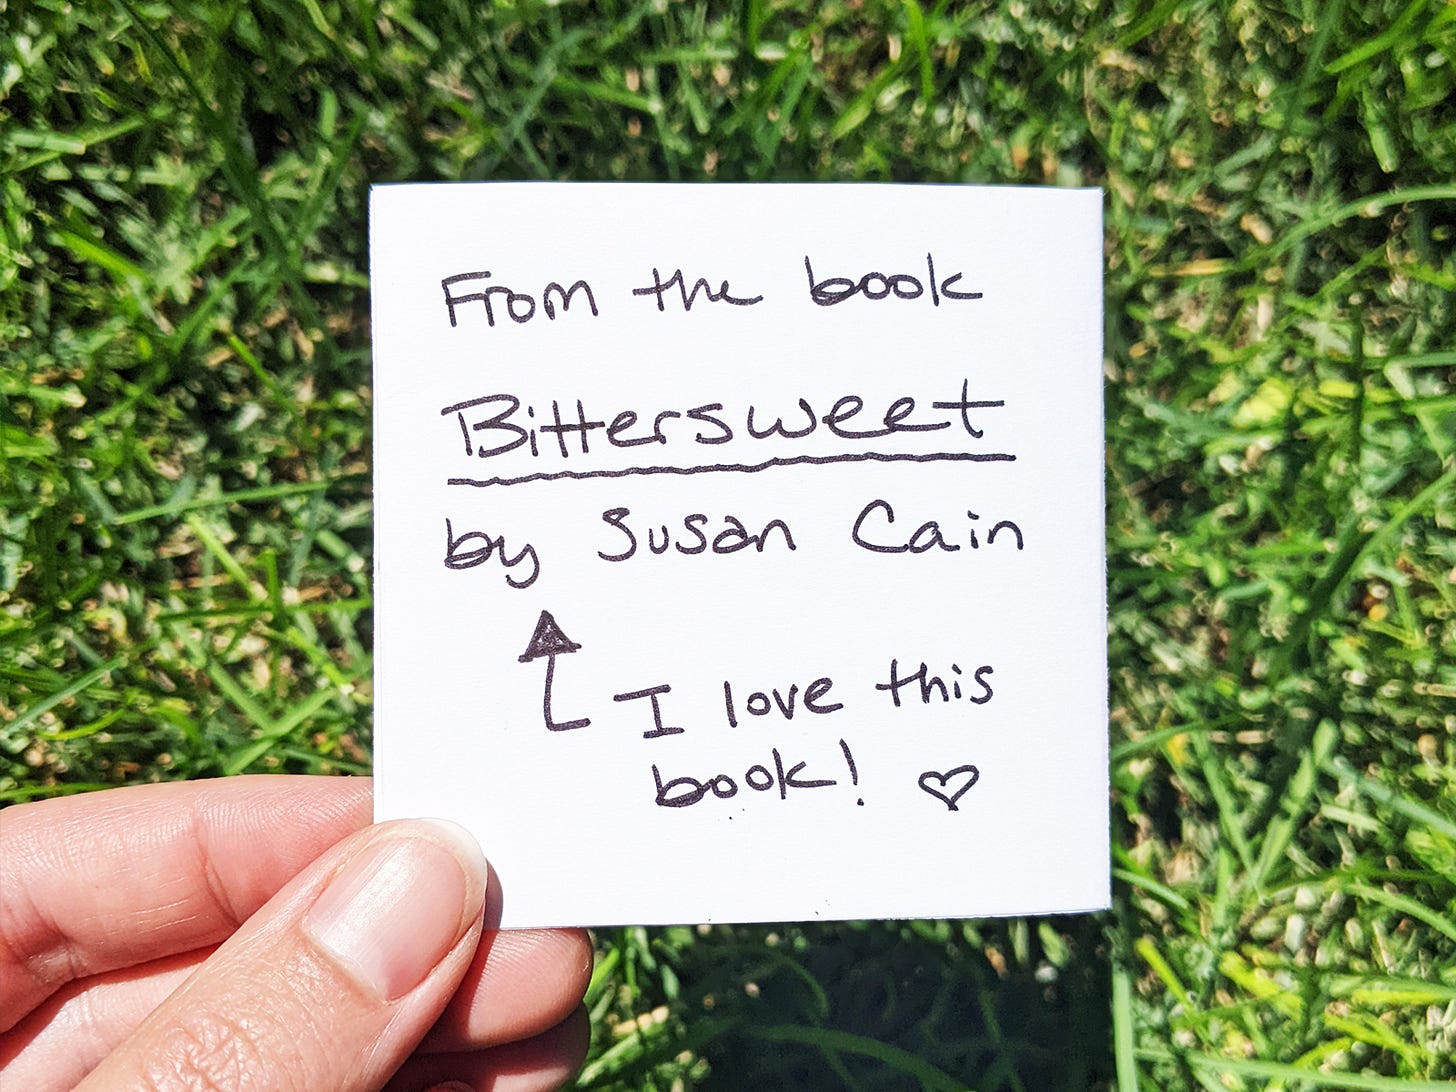 From the book
Bittersweet
by Susan Cain
I love this
book! ♡